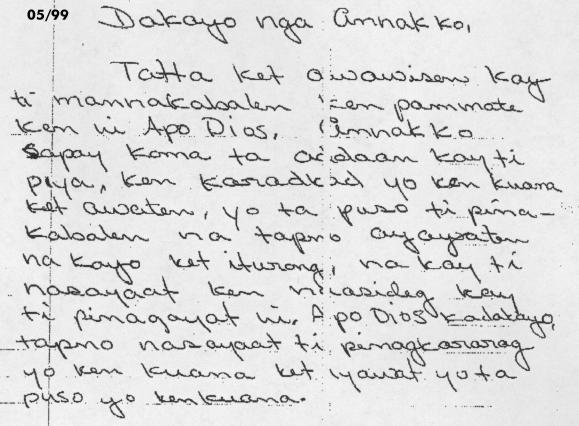 05/99
Dakayo nga annakko,
Tatta ket awawisen kay
ti mannakabalen ken pammate
ken ni Apo Dios. Annakko
sapay koma ta addaan kay ti
piya, ken karadkad yo ken kuana
ket awaten, yo ta puso ti pina-
kabalen na tapno ayayaten
na kayo ket iturong, na kay ti
nasayaat ken naasideg kay
ti pinagayat ni, Apo Dios kadakayo,
tapno nasayaat ti pinagkararag
yo ken kuana ket iyawat yo ta
puso yo ken kuana.